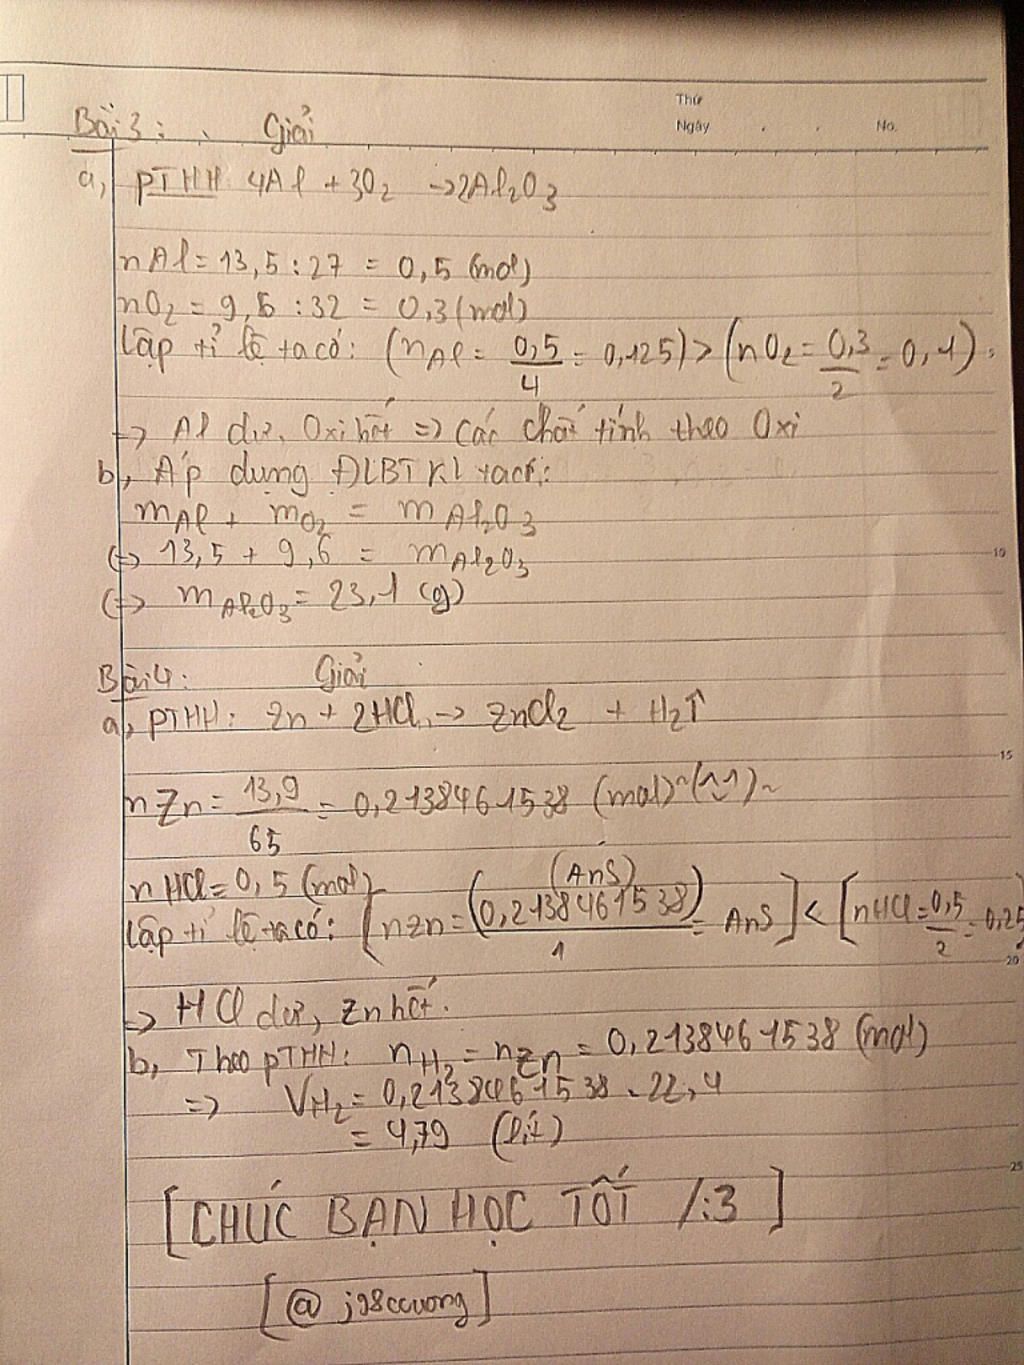 Thứ
Ngày . . No.
Bài 3: Giải
a, PTHH: 4Al + 3O2 → 2Al2O3
nAl = 13,5 : 27 = 0,5 (mol)
nO2 = 9,6 : 32 = 0,3 (mol)
Lập tỉ lệ ta có: (nAl = 0,5/4 = 0,125) > (nO2 = 0,3/2 = 0,1).
→ Al dư, Oxi hết => Các chất tính theo Oxi
b, Áp dụng ĐLBTKL ta có:
mAl + mO2 = mAl2O3
<=> 13,5 + 9,6 = mAl2O3
<=> mAl2O3 = 23,1 (g)
10
Bài 4: Giải
a, PTHH: Zn + 2HCl → ZnCl2 + H2↑
15
nZn = 13,9/65 = 0,2138461538 (mol)
nHCl = 0,5 (mol)
(Ans)
Lập tỉ lệ ta có: [nZn = (0,2138461538)/1 = Ans] < [nHCl = 0,5/2 = 0,25
20
→ HCl dư, Zn hết.
b, Theo PTHH: nH2 = nZn = 0,2138461538 (mol)
=> VH2 = 0,2138461538 . 22,4
= 4,79 (lít)
25
[CHÚC BẠN HỌC TỐT /:3]
[@j98ccuong]